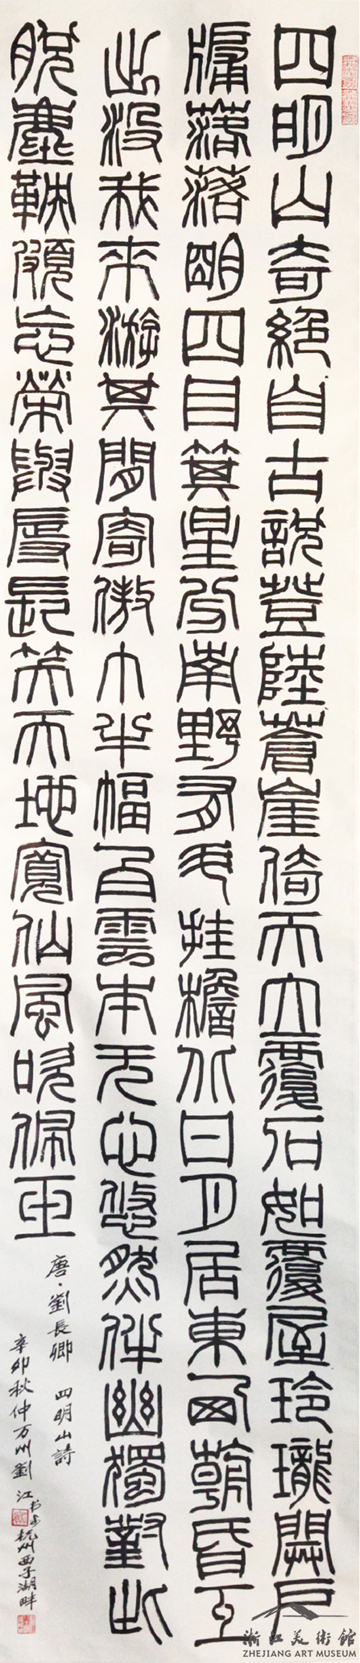 四明山奇絕自古說登陸蒼崖倚天立覆石如覆屋玲瓏開戶
牖落落朙四目箕星分南野有斗挂檐北日月居東西朝昏互
出沒我來游其間寄傲巾半幅白雲本无心悠然伴幽獨對此
脫塵鞅頓忘榮與辱長笑天地寬仙風吹佩玉
唐·劉長卿 四明山詩
辛卯秋仲万州劉江书于杭州西子湖畔
浙江美術館
ZHEJIANG ART MUSEUM